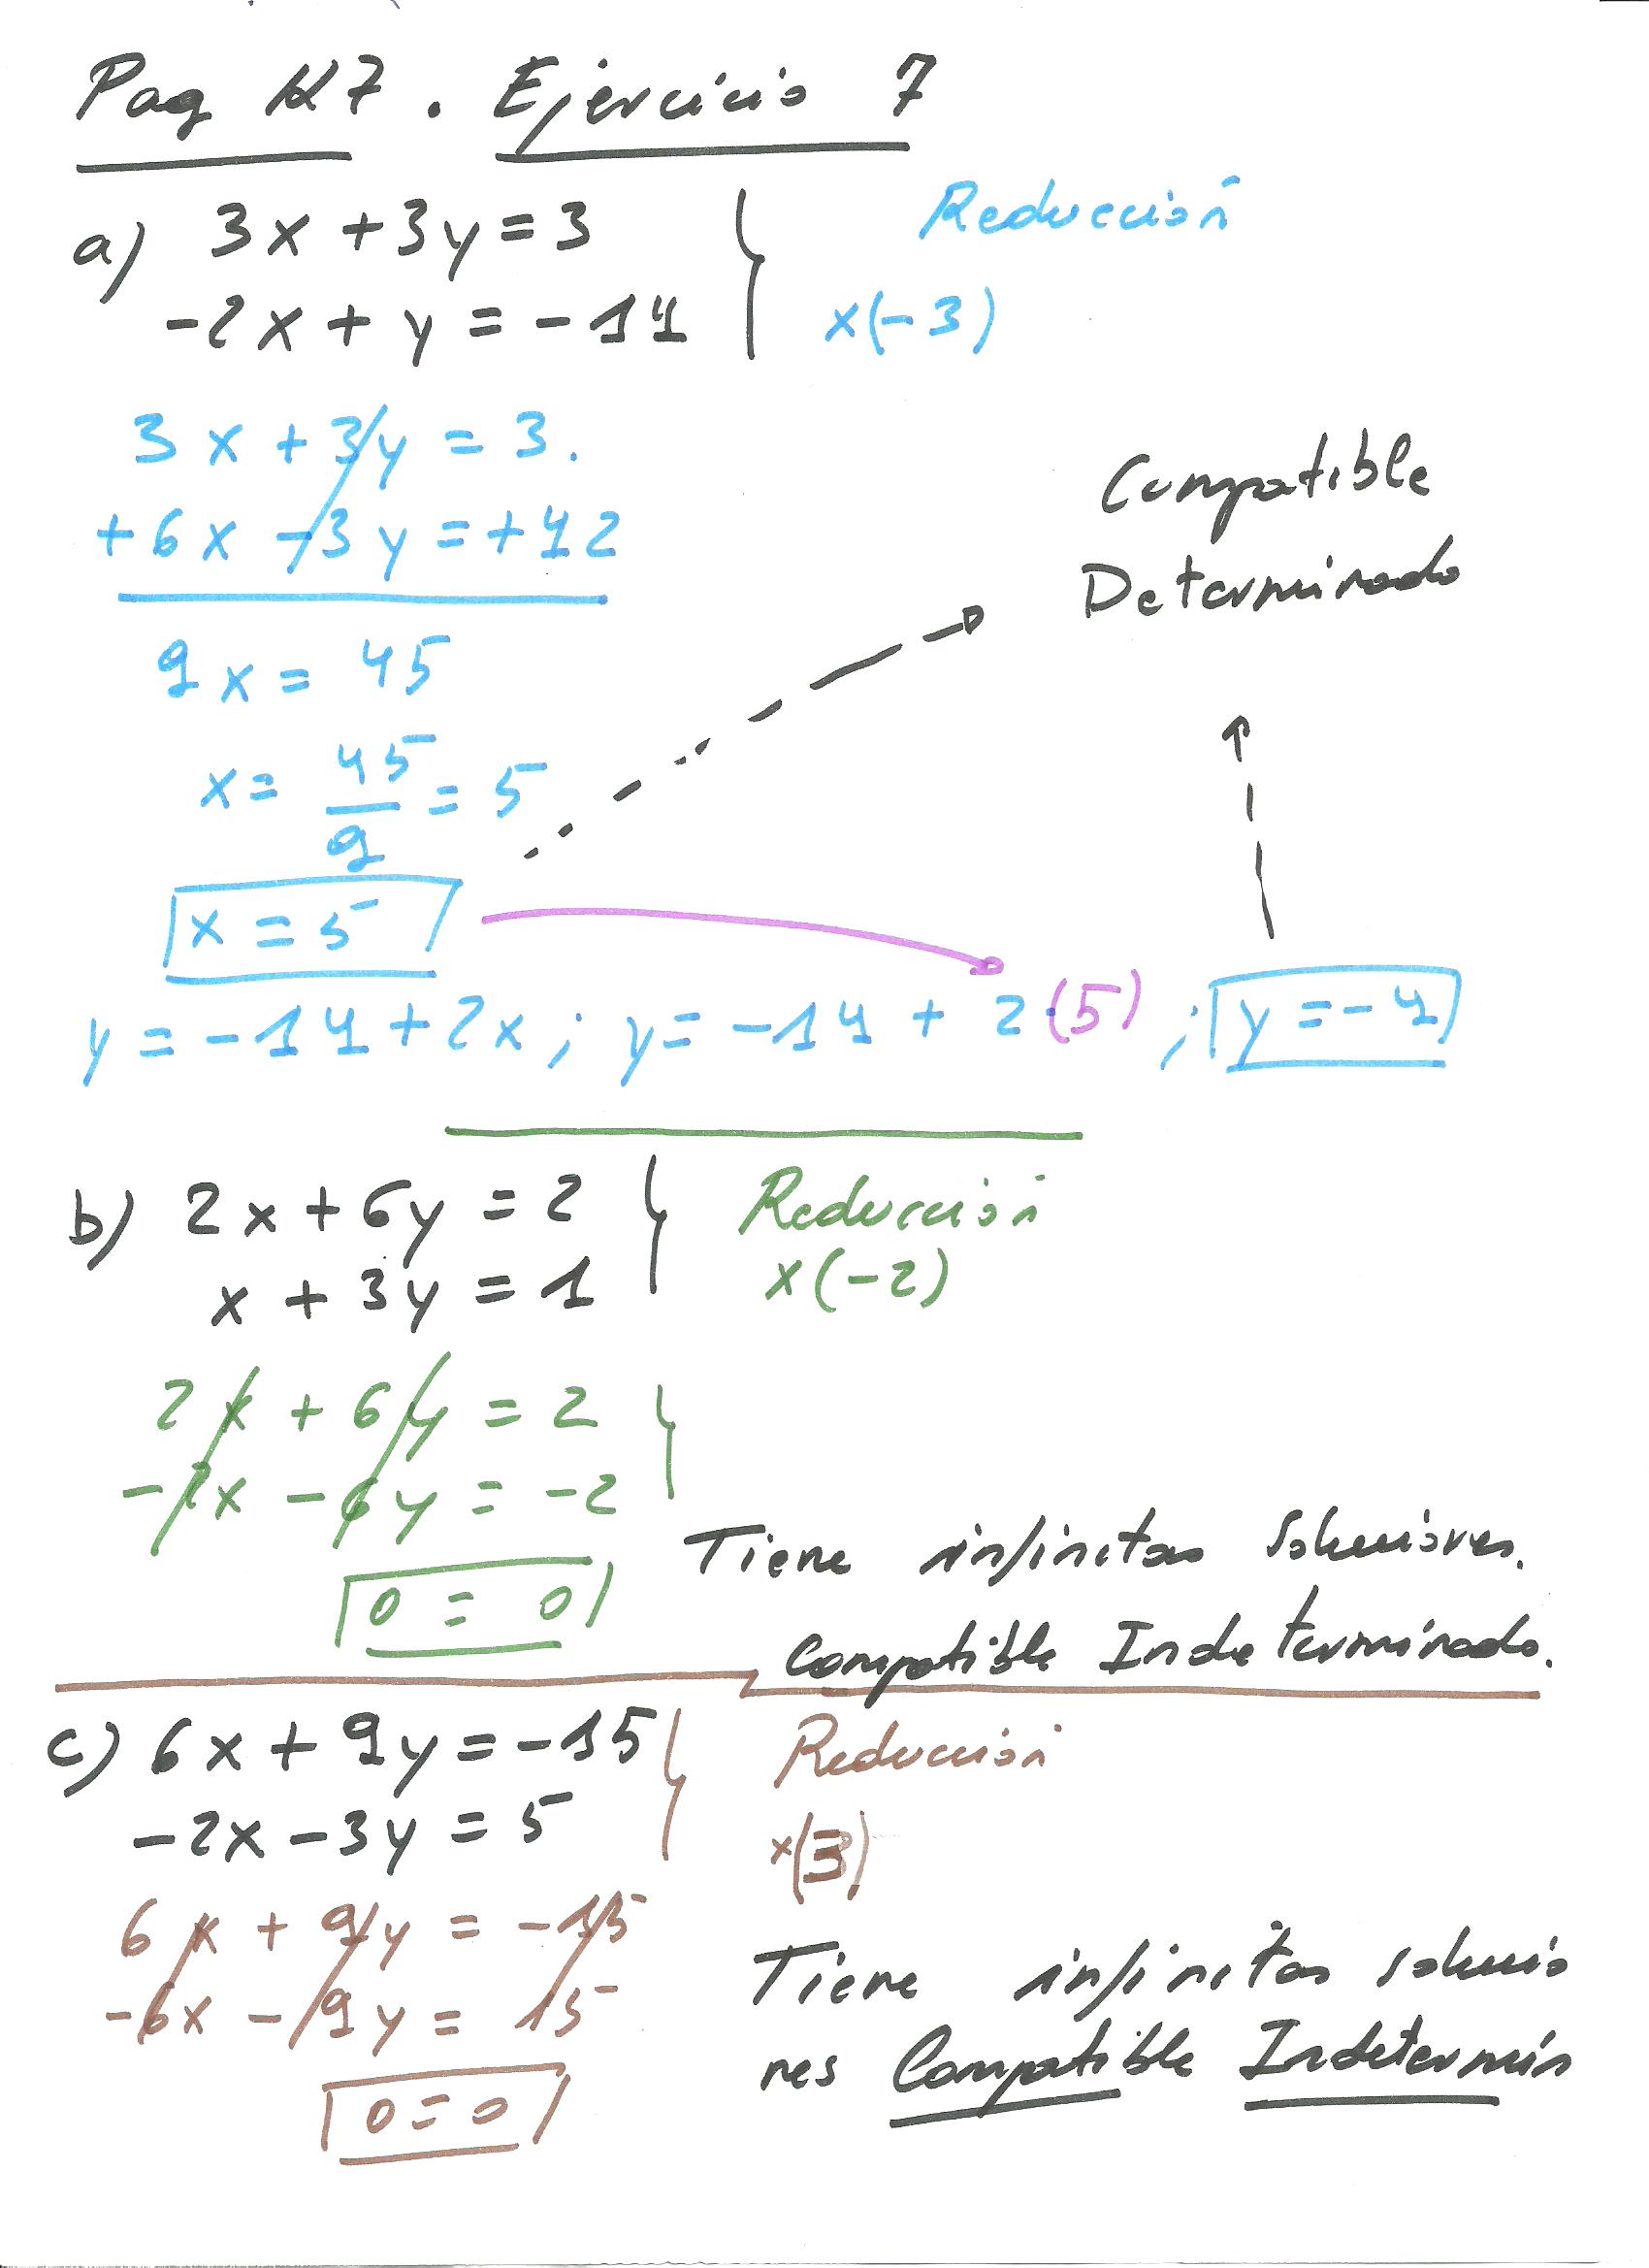 Pag 127. Ejercicio 7
a) 3x + 3y = 3
Reducción
-2x + y = -14
x(-3)
3x + 3y = 3.
+6x - 3y = +42
9x = 45
x = 45/9 = 5
x = 5
Compatible
Determinado
y = -14 + 2x ; y = -14 + 2·(5) ; y = -4
b) 2x + 6y = 2
Reducción
x + 3y = 1
x(-2)
2x + 6y = 2
-2x - 6y = -2
0 = 0
Tiene infinitas soluciones.
Compatible Indeterminado.
c) 6x + 9y = -15
Reducción
-2x - 3y = 5
x(3)
6x + 9y = -15
-6x - 9y = 15
0 = 0
Tiene infinitas solucio
nes Compatible Indetermin